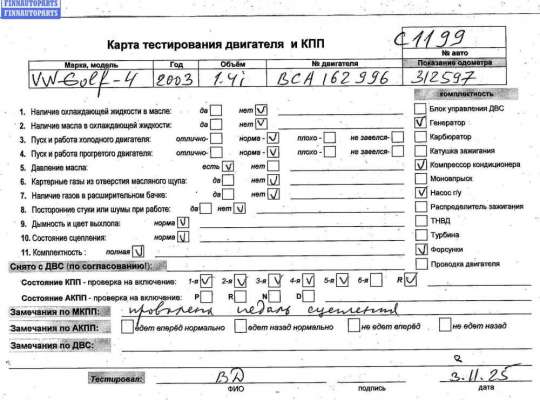 FINNAUTOPARTS
FINNAUTOPARTS
Карта тестирования двигателя и КПП
C1199
№ авто
Марка, модель Год Объём № двигателя Показание одометра
VW-Golf-4 2003 1.4i BCA 162 996 312597
комплектность
1. Наличие охлаждающей жидкости в масле: да нет V
2. Наличие масла в охлаждающей жидкости: да нет V
3. Пуск и работа холодного двигателя: отлично- норма - V плохо - не завелся-
4. Пуск и работа прогретого двигателя: отлично- норма - V плохо - не завелся-
5. Давление масла: есть V нет
6. Картерные газы из отверстия масляного щупа: да нет V
7. Наличие газов в расширительном бачке: да нет V
8. Посторонние стуки или шумы при работе: да нет V
9. Дымность и цвет выхлопа: норма V
10. Состояние сцепления: норма V
11. Комплектность : полная V
Блок управления ДВС
V Генератор
Карбюратор
Катушка зажигания
V Компрессор кондиционера
Моновпрыск
V Насос г/у
Распределитель зажигания
ТНВД
Турбина
V Форсунки
Проводка двигателя
Снято с ДВС (по согласованию!):
Состояние КПП - проверка на включение: 1-я V 2-я V 3-я V 4-я V 5-я V 6-я R V
Состояние АКПП - проверка на включение: P R N D
Замечания по МКПП: провалена педаль сцепления
Замечания по АКПП: едет вперёд нормально едет назад нормально не едет вперёд не едет назад
Замечания по ДВС:
Тестировал: ВД 3.11.25
ФИО подпись дата